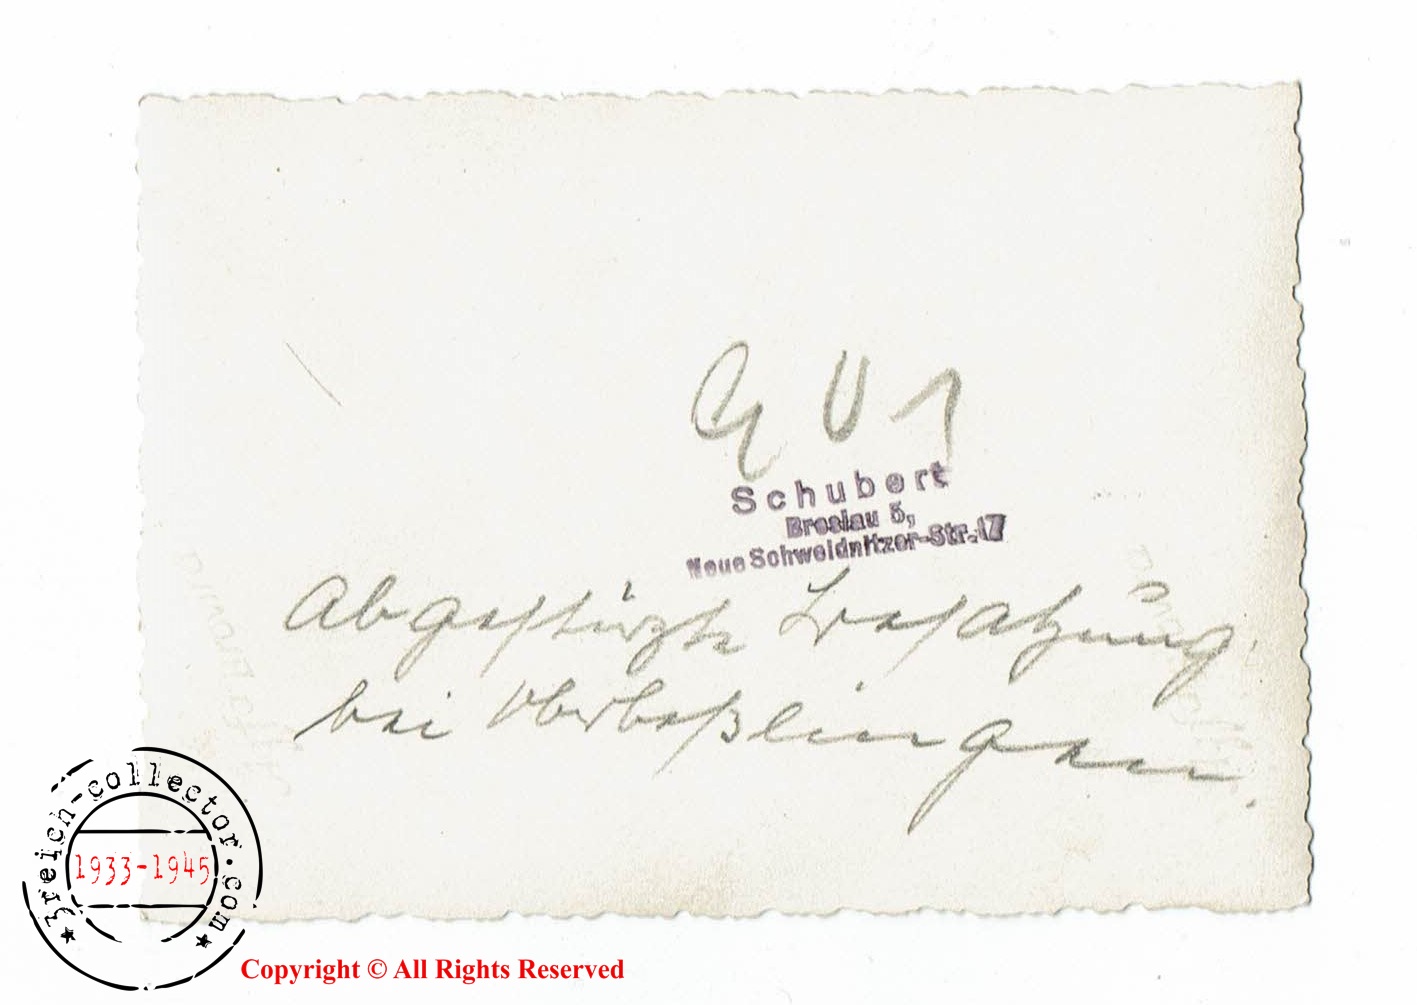 Schubert
Breslau 5,
Neue Schweidnitzer-Str. 17
Abgestürzte Besatzung
bei Oberbeßlingen.
3reich-collector.com
1933-1945
Copyright © All Rights Reserved